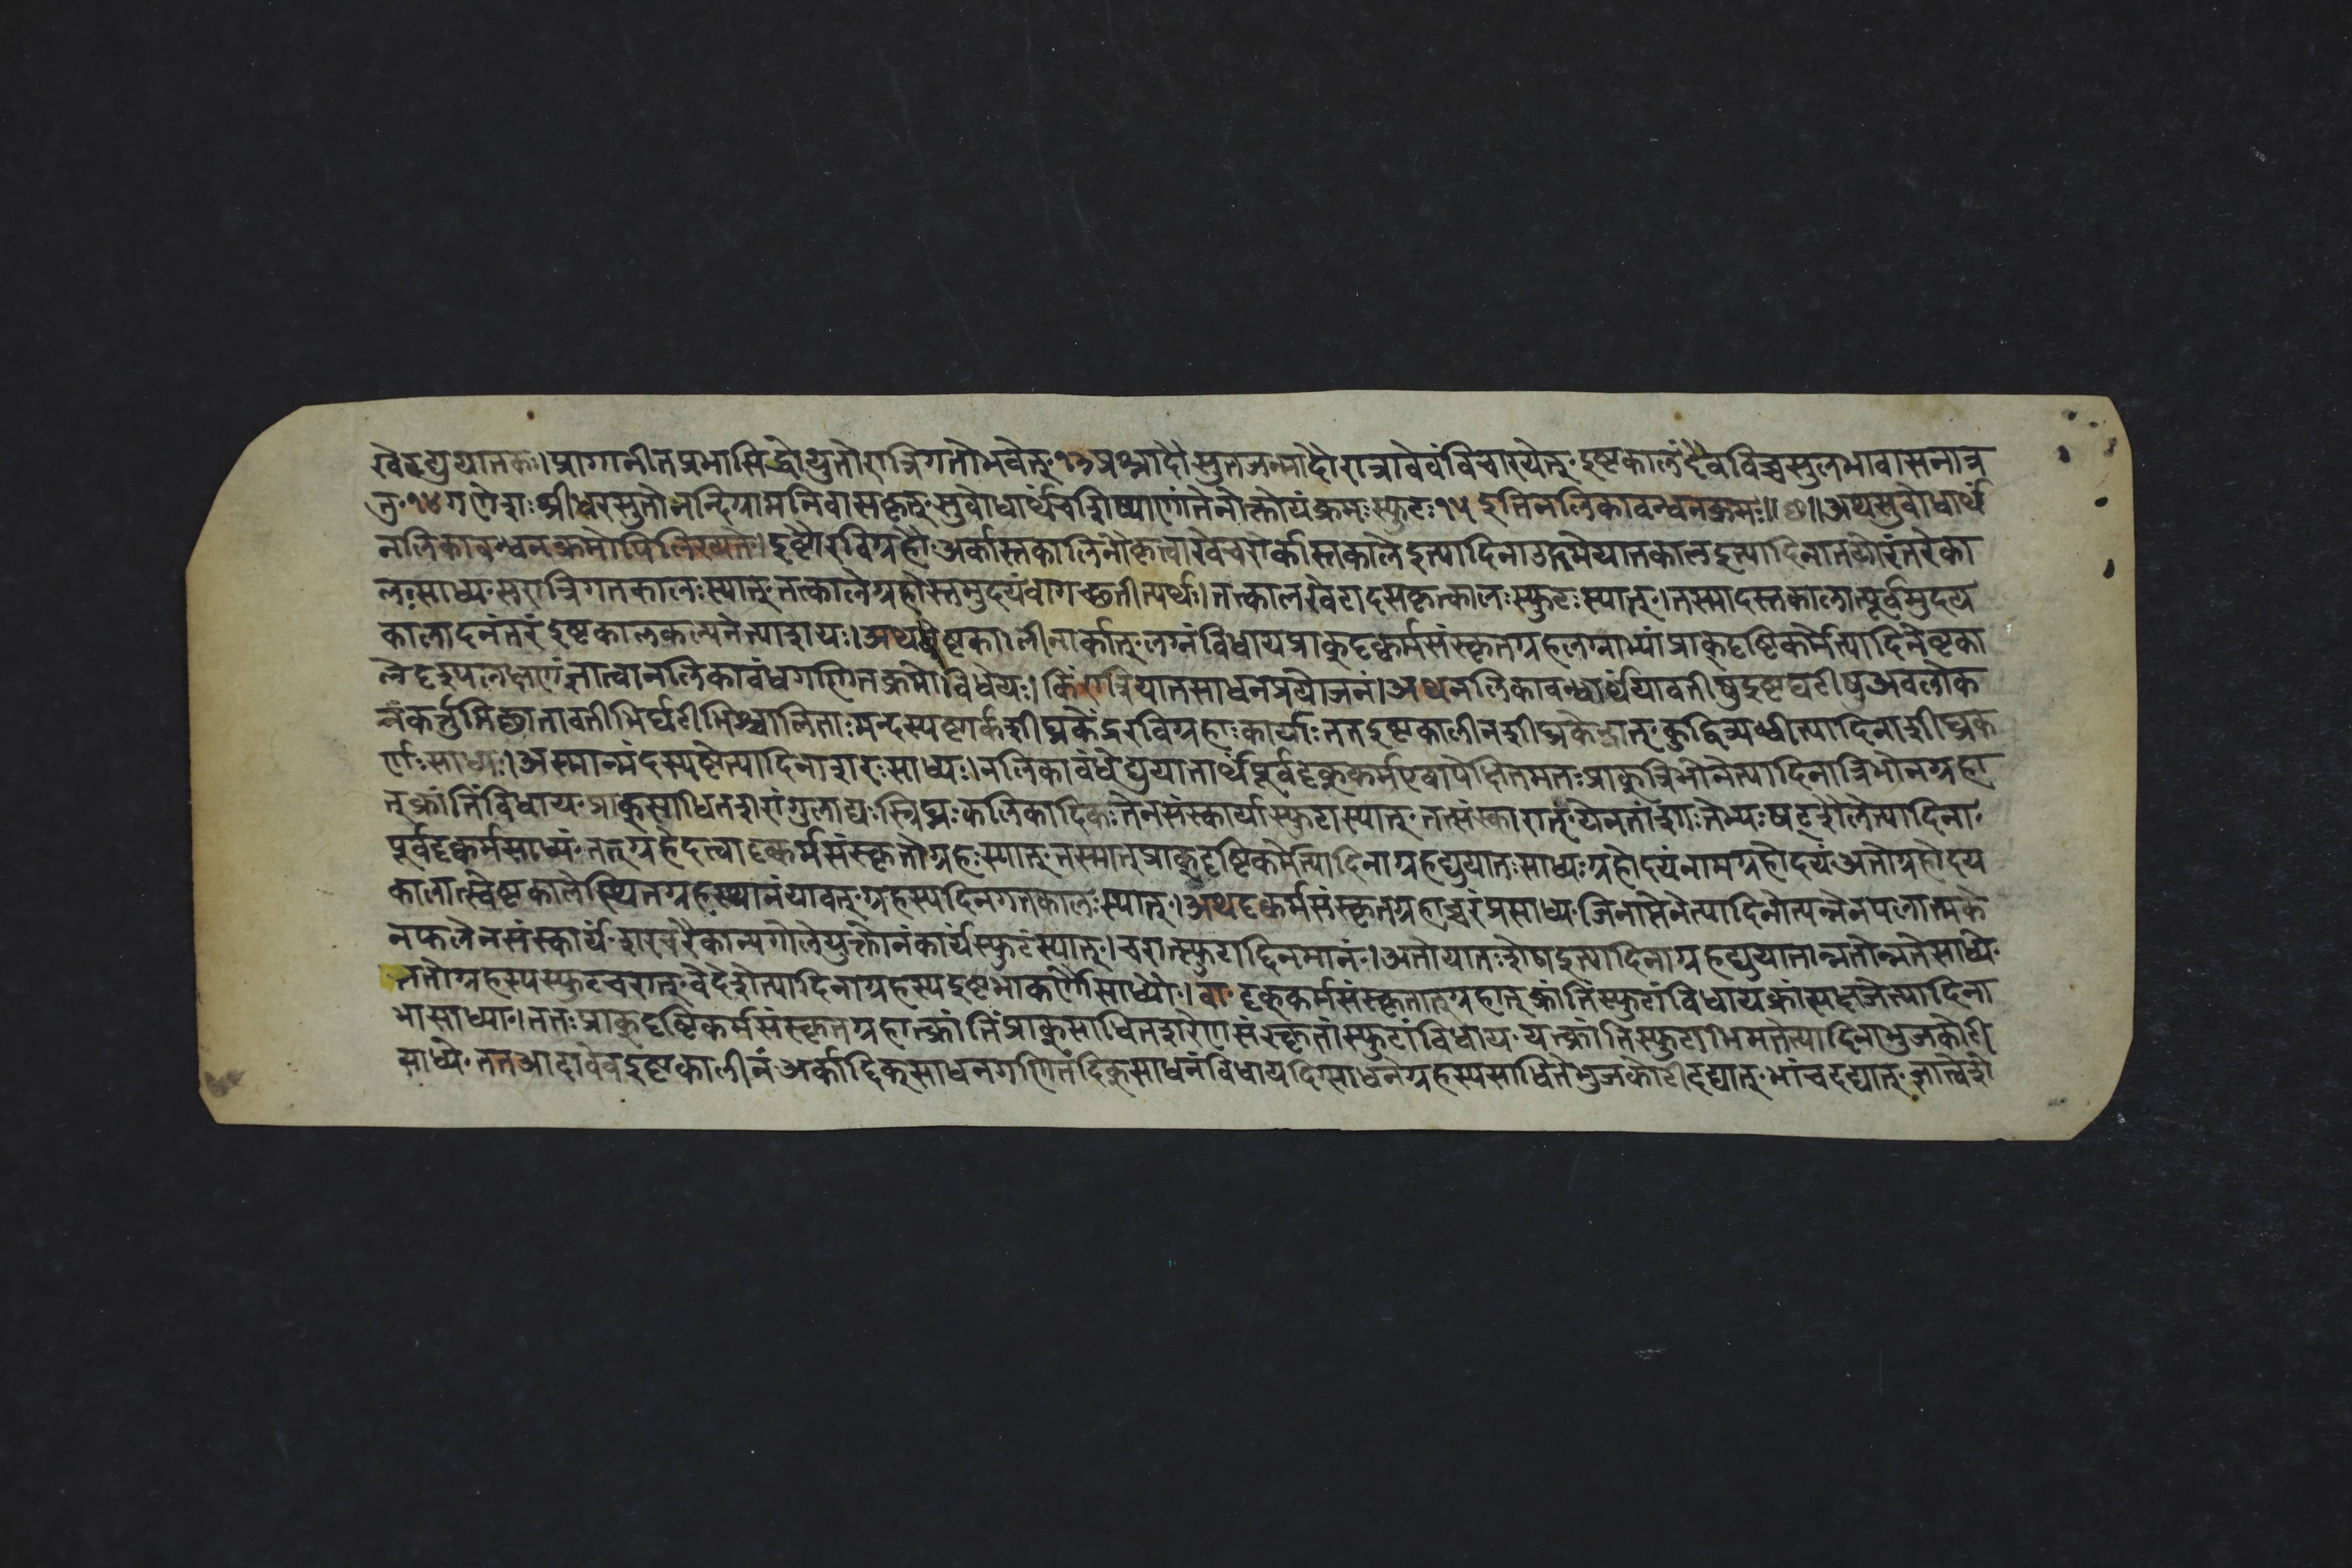 खेटद्युयातकः।प्रागानीतप्रभासिद्धोद्युतोरात्रिगतोभवेत्॰१३प्रश्नादौसुतजन्मादौरात्रावेवंविचारयेत्॰इष्टकालंदैवविच्चसुलभावासनात्र
तु॰१४गणेशःश्रीधरसुतोनन्दिग्रामनिवासकृत्॰सुवोधार्थंचशिष्याणांतेनोक्तोयंक्रमःस्फुटः१५इतिनलिकावन्धनक्रमः॥७॥अथसुवोधार्थं
नलिकावन्धनक्रमोपिलिख्यते।इष्टोरविग्रहौअर्कास्तकालिनौकृत्वाखेचरोर्कास्तकालेइत्यादिनाउद्गमेयातकालइत्यादिनातयोरंतरेका
लःसाध्यःसरात्रिगतकालःस्यात्॰तत्कालेग्रहोस्तमुदयंवागच्छतीत्यर्थः।तत्कालखेटादसकृत्कालःस्फुटःस्यात्।तस्मादस्तकालात्पूर्वमुदय
कालादनंतरंइष्टकालकल्पनेत्याशयः।अथेष्टकालीनार्कात्॰लग्नंविधायप्राक्दृक्कर्मसंस्कृतग्रहलग्नाभ्यांप्राक्दृष्टिकर्मेत्यादिनेष्टका
लेदृश्यलक्षणंज्ञात्वानलिकावंधगणितक्रमोविधेयः।किंरात्रियातसाधनप्रयोजनं।अथनलिकावन्धार्थंयावतीषुइष्टघटीषुअवलोक
नंकर्त्तुमिच्छातावतीभिर्घटीभिश्चालिताःमन्दस्पष्टार्कशीघ्रकेंद्ररविग्रहाःकार्याःततइष्टकालीनशीघ्रकेन्द्रात्॰कुद्वित्र्यब्धीत्यादिनाशीघ्रक
र्णःसाध्यः।अस्मान्मंदस्पष्टेत्यादिनाशरःसाध्यः।नलिकावंधेद्युयातार्थंपूर्वदृक्कर्मएवापेक्षितमतःप्राक्त्रिभोनेत्यादिनात्रिभोनग्रहा
त्क्रांतिंविधायप्राक्साधितशरांगुलाद्यःस्त्रिघ्नःकलिकादिकःतेनसंस्कार्यास्फुटास्यात्॰तत्संस्कारात्॰येनतांशाःतेभ्यःषट्शैलेत्यादिना॰
पूर्वदृक्कर्मसाध्यं॰तत्ग्रहेदत्वादृक्कर्मसंस्कृतोग्रहःस्यात्॰तस्मात्प्राक्दृष्टिकर्मेत्यादिनाग्रहद्युयातःसाध्यःग्रहोदयंनामग्रहोदयंअतोग्रहोदय
कालात्स्वेष्टकालेस्थितग्रहस्थानंयावत्॰ग्रहस्यदिनगतकालःस्यात्।अथदृक्कर्मसंस्कृतग्रहाच्चरंप्रसाध्य॰जिनाप्तेनेत्यादिनोत्पन्नेनपलात्मके
नफलेनसंस्कार्यं॰शरचरैकान्यगोलेयुक्तोनंकार्यंस्फुटंस्यात्।चरात्स्फुटाद्दिनमानं।अतोयातःशेषइत्यादिनाग्रहद्युयातान्नतोन्नतेसाध्ये॰
ततोग्रहस्यस्फुटचरात्॰वेदेशेत्यादिनाग्रहस्यइष्टभाकर्णोसाध्यो।वा॰दृक्कर्मसंस्कृतात्ग्रहात्क्रांतिंस्फुटांविधायक्रांत्यक्षजेत्यादिना
भासाध्या।ततःप्राक्दृष्टिकर्मसंस्कृतग्रहात्क्रांतिंप्राक्साधितशरेणसंस्कृतांस्फुटांविधाय॰यत्क्रांतिस्फुटाभिमतेत्यादिनाभुजकोटी
साध्ये॰ततआदावेवइष्टकालीनंअर्काद्दिक्साधनगणितंदिक्साधनंविधायदिग्साधनेग्रहस्यसाधितेभुजकोटीदद्यात्॰भांचदद्यात्॰ज्ञात्वेशे